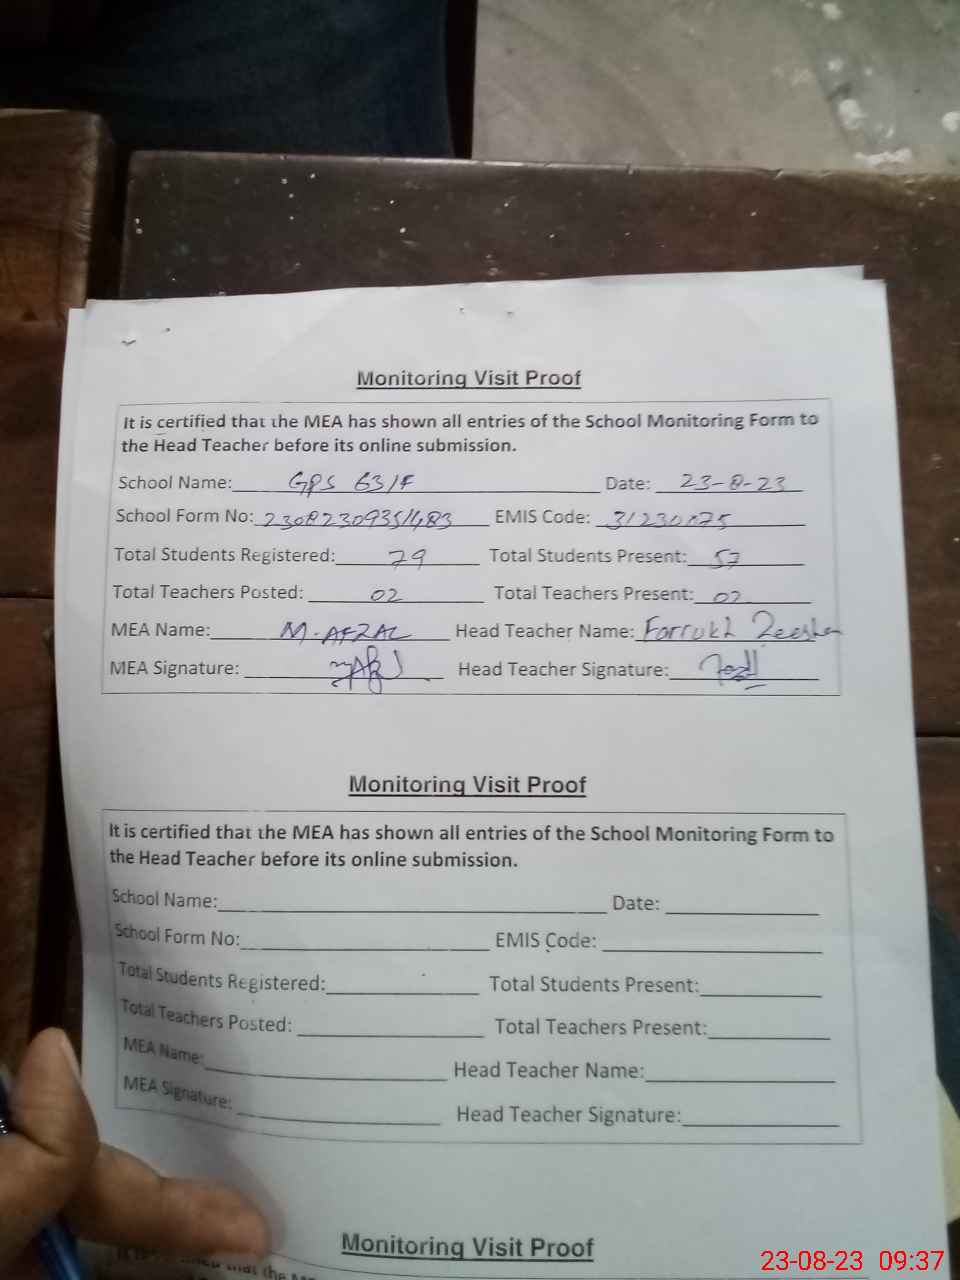 Monitoring Visit Proof
It is certified that the MEA has shown all entries of the School Monitoring Form to
the Head Teacher before its online submission.
School Name: GPS 63/F Date: 23-8-23
School Form No: EMIS Code:
Total Students Registered: 79 Total Students Present: 57
Total Teachers Posted: 02 Total Teachers Present: 02
MEA Name: M-AFZAL Head Teacher Name: Farrukh Zeeshan
MEA Signature: Head Teacher Signature:
Monitoring Visit Proof
It is certified that the MEA has shown all entries of the School Monitoring Form to
the Head Teacher before its online submission.
School Name: Date:
School Form No: EMIS Code:
Total Students Registered: Total Students Present:
Total Teachers Posted: Total Teachers Present:
MEA Name: Head Teacher Name:
MEA Signature: Head Teacher Signature:
Monitoring Visit Proof
that the
23-08-23 09:37